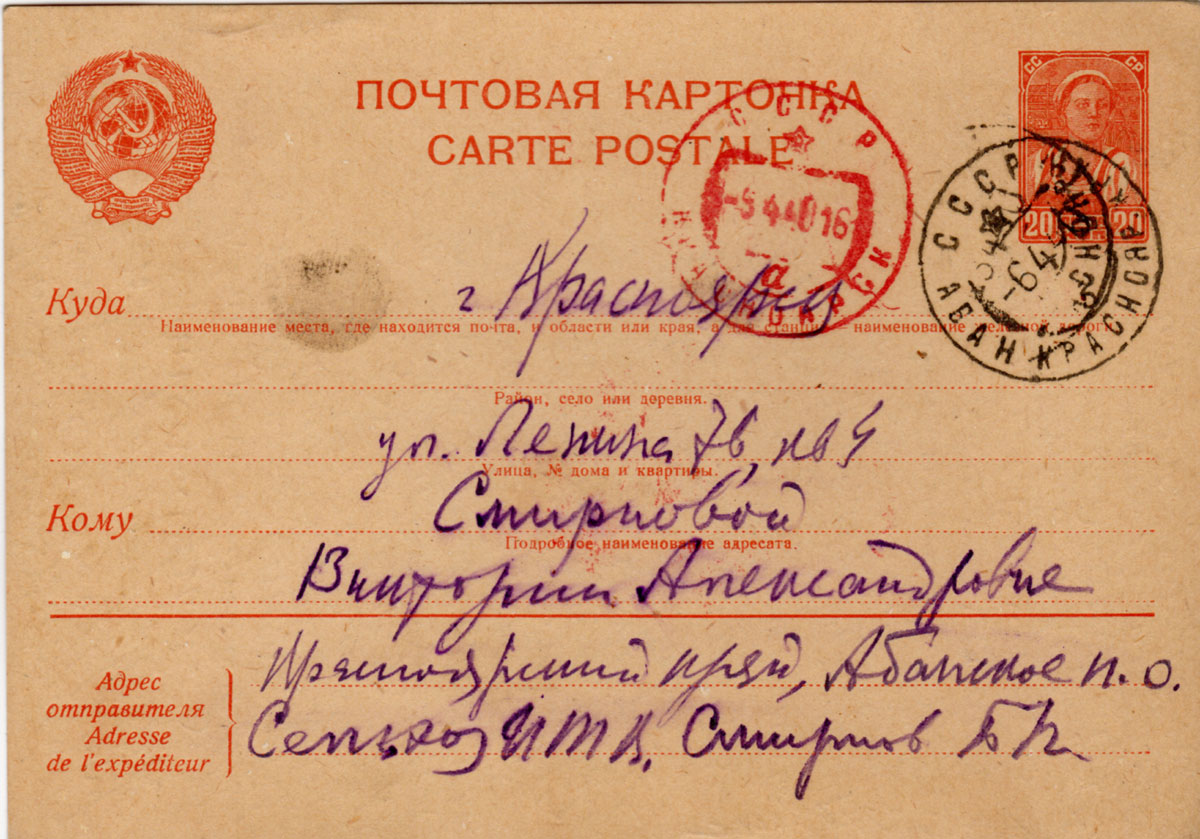 ПОЧТОВАЯ КАРТОЧКА
CARTE POSTALE
СС СР
20 20
СССР
-9 4 40 16
а
КРАСНОЯРСК
СССР
-6 4
АБАН КРАСНОЯР
Куда г Красноярск
Наименование места, где находится почта, и области или края, а для станции наименование железной дороги
Район, село или деревня.
ул. Ленина 76, кв 4
Улица, № дома и квартиры.
Кому Смирновой
Подробное наименование адресата.
Виктории Александровне
Адрес отправителя
Adresse de l'expéditeur
Красноярский край, Абанское п.о.
Сельхоз ИТК, Смирнов Б